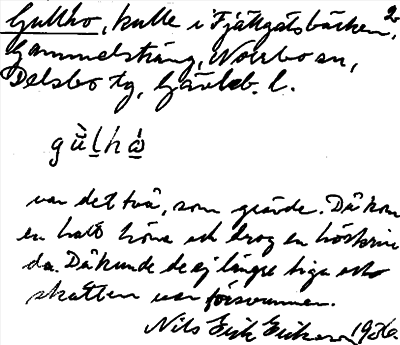 Gullho, kulle i Fjällgatsbäcken, 2
Gammelsträng, Norrbo sn,
Delsbo tg, Gävleb. l.
gu̇̀l̲hω̲̇
var det två, som grävde. Då kom
en halt höna och drog en höskrin
da. Då kunde de ej längre tiga och
skatten var försvunnen.
Nils Erik Eriksson 1936.